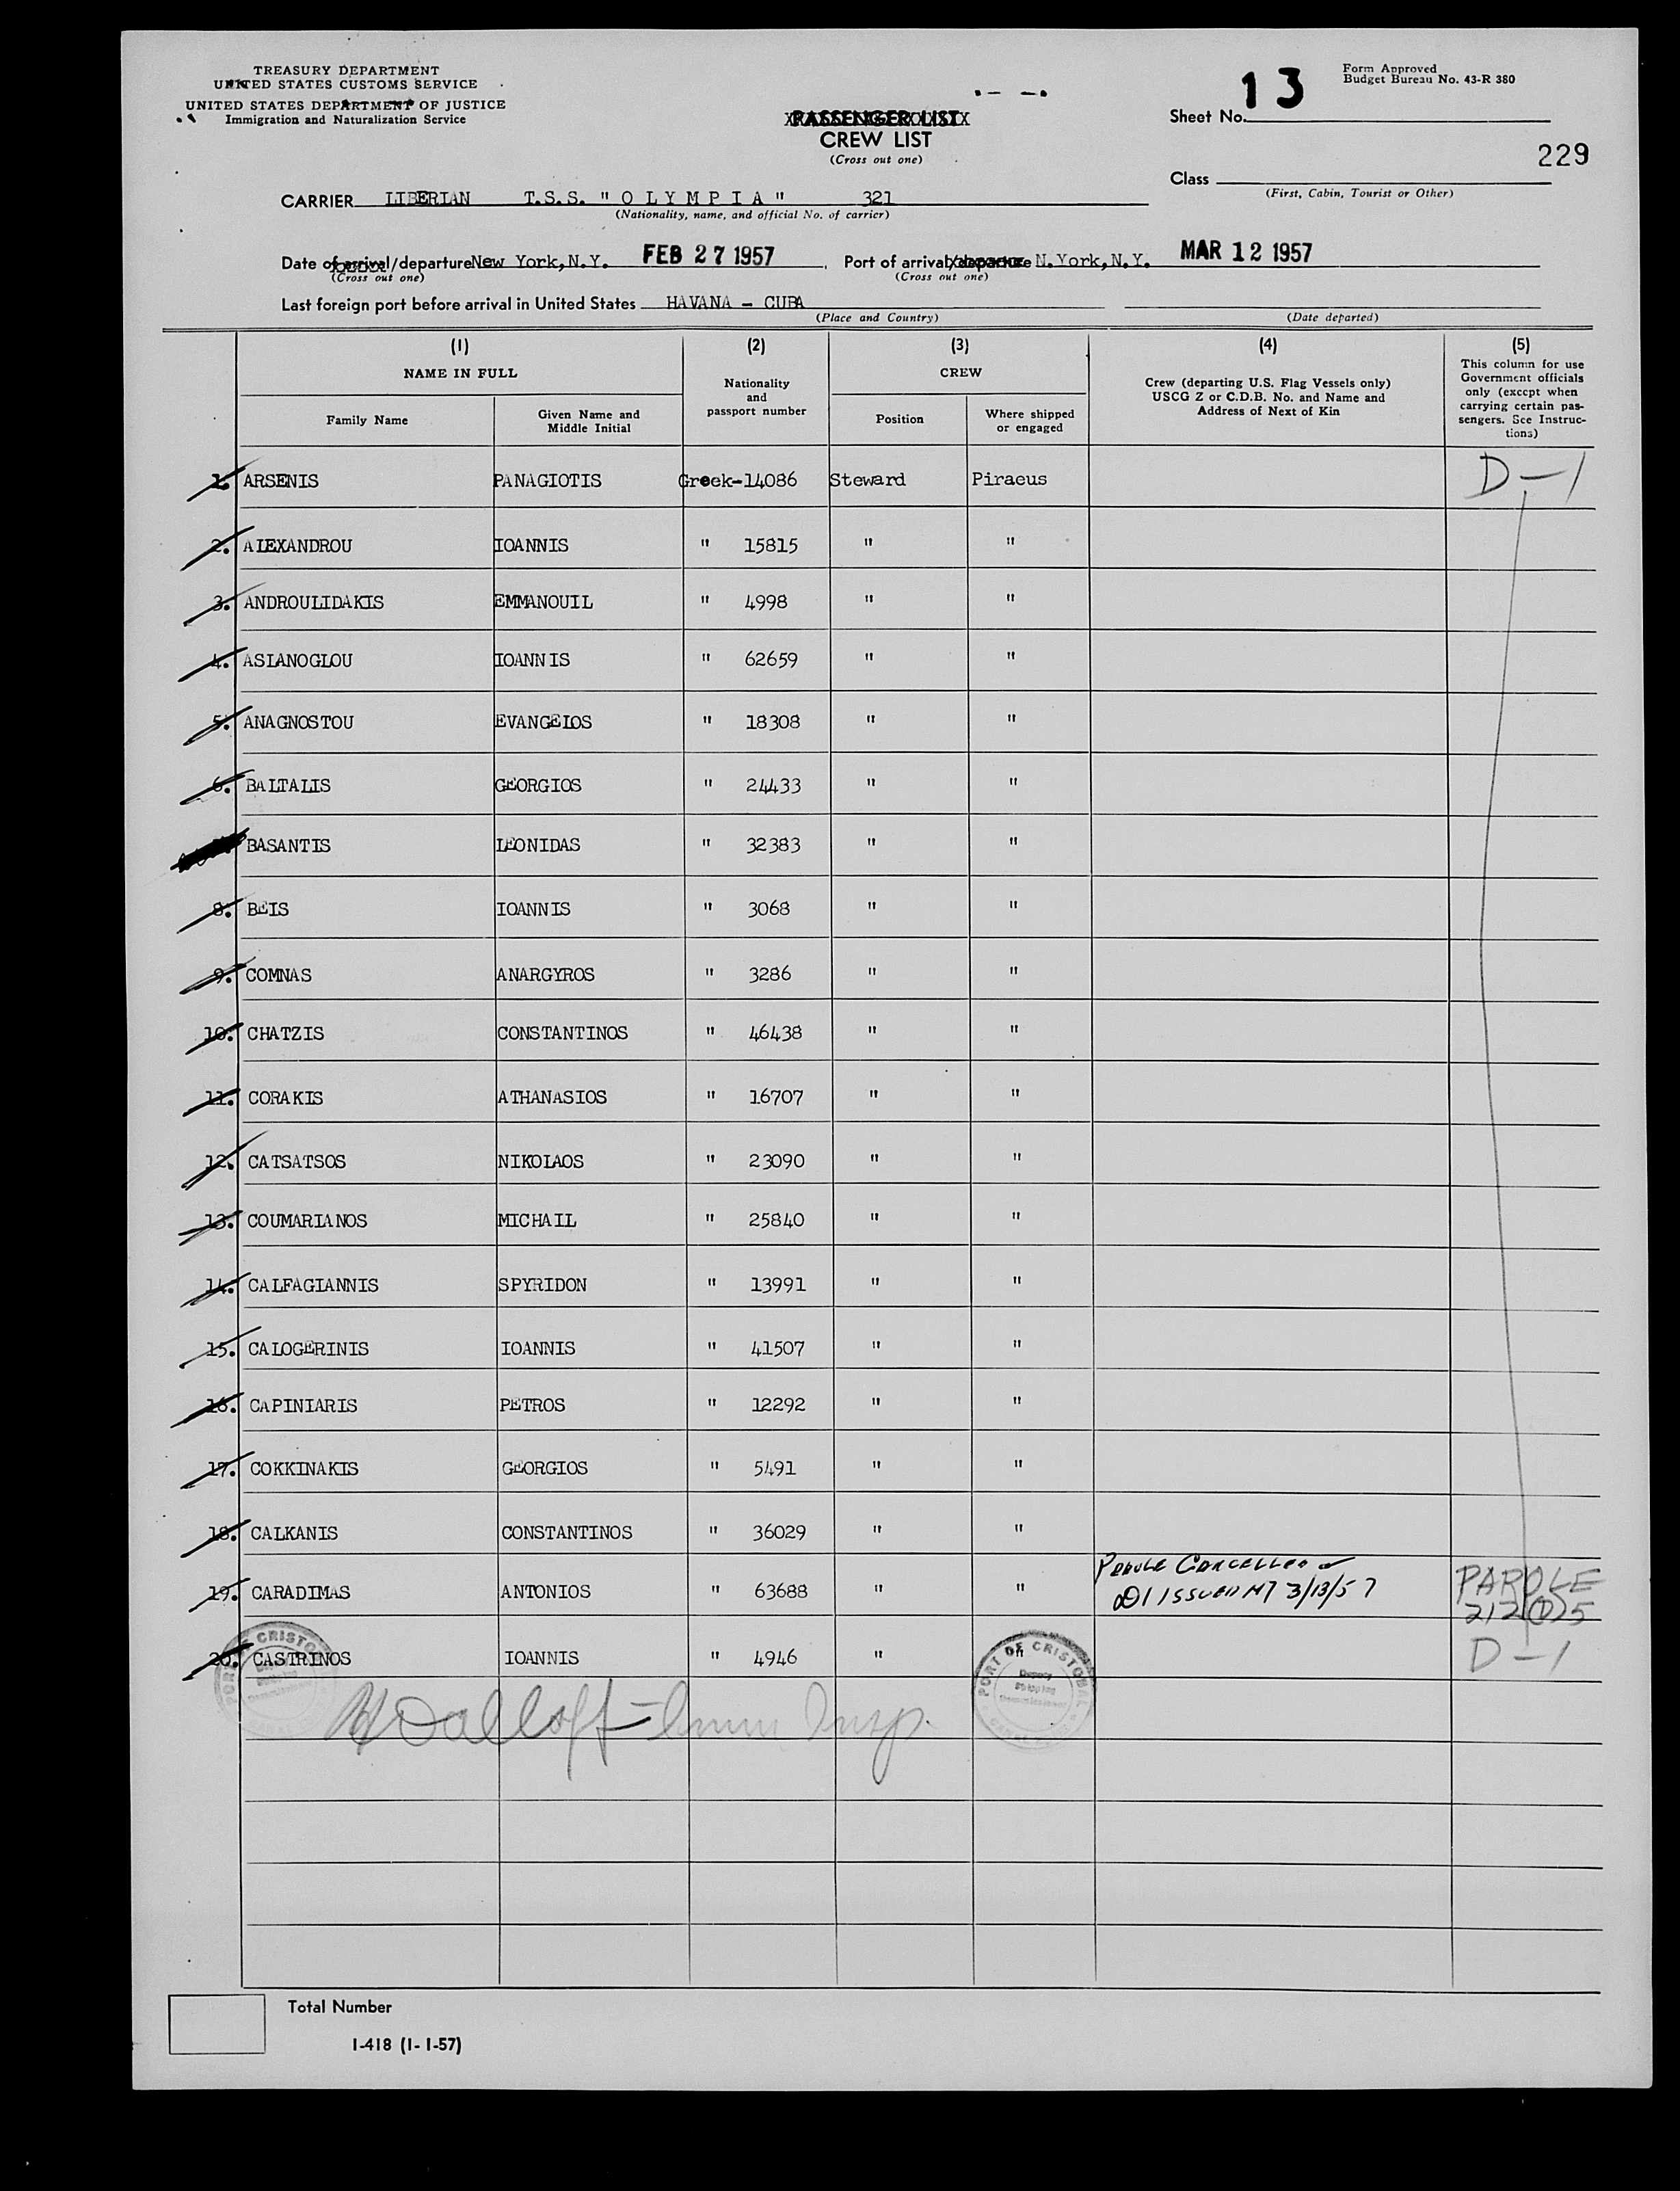 TREASURY DEPARTMENT
UNITED STATES CUSTOMS SERVICE
UNITED STATES DEPARTMENT OF JUSTICE
Immigration and Naturalization Service
PASSENGER LIST
CREW LIST
(Cross out one)
13
Form Approved
Budget Bureau No. 43-R 380
Sheet No.
229
Class
(First, Cabin, Tourist or Other)
CARRIER LIBERIAN T.S.S. " O L Y M P I A " 321
(Nationality, name, and official No. of carrier)
Date of arrival/departure New York, N.Y. FEB 27 1957 Port of arrival/departure N.York, N.Y. MAR 12 1957
(Cross out one) (Cross out one)
Last foreign port before arrival in United States HAVANA - CUBA
(Place and Country) (Date departed)
(1) (2) (3) (4) (5)
NAME IN FULL
Family Name
Given Name and
Middle Initial
Nationality
and
passport number
CREW
Position
Where shipped
or engaged
Crew (departing U.S. Flag Vessels only)
USCG Z or C.D.B. No. and Name and
Address of Next of Kin
This column for use
Government officials
only (except when
carrying certain pas-
sengers. See Instruc-
tions)
1. ARSENIS PANAGIOTIS Greek-14086 Steward Piraeus D-1
2. ALEXANDROU IOANNIS " 15815 " "
3. ANDROULIDAKIS EMMANOUIL " 4998 " "
4. ASLANOGLOU IOANNIS " 62659 " "
5. ANAGNOSTOU EVANGELOS " 18308 " "
6. BALTALIS GEORGIOS " 24433 " "
BASANTIS LEONIDAS " 32383 " "
8. BEIS IOANNIS " 3068 " "
9. COMNAS ANARGYROS " 3286 " "
10. CHATZIS CONSTANTINOS " 46438 " "
11. CORAKIS ATHANASIOS " 16707 " "
12. CATSATSOS NIKOLAOS " 23090 " "
13. COUMARIANOS MICHAIL " 25840 " "
14. CALFAGIANNIS SPYRIDON " 13991 " "
15. CALOGERINIS IOANNIS " 41507 " "
16. CAPINIARIS PETROS " 12292 " "
17. COKKINAKIS GEORGIOS " 5491 " "
18. CALKANIS CONSTANTINOS " 36029 " "
Parole Cancelled
19. CARADIMAS ANTONIOS " 63688 " " D1 issued 3/13/57 PAROLE
212(D)5
20. CASTRINOS IOANNIS " 4946 " " D-1
PORT OF CRISTOBAL
PORT OF CRISTOBAL
Deputy
Shipping
Imm Insp.
Total Number
I-418 (1-1-57)